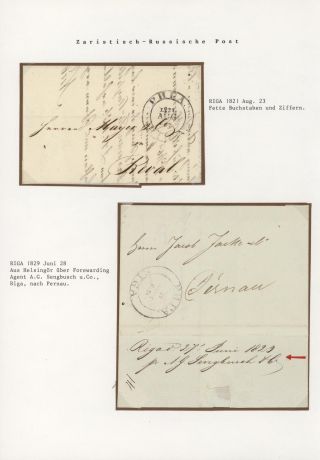 Zaristisch-Russische Post
РИГА
1821
AUG
23
RIGA 1821 Aug. 23
Fette Buchstaben und Ziffern.
Herren Mayer
in
Reval
RIGA 1829 Juni 28
Aus Helsingör über Forewarding
Agent A.G. Sengbusch u.Co.,
Riga, nach Pernau.
Herrn Jacob Jacke
РИГА
Pernau
Riga d 27 Juni 1829
pr AG Sengbusch & C.